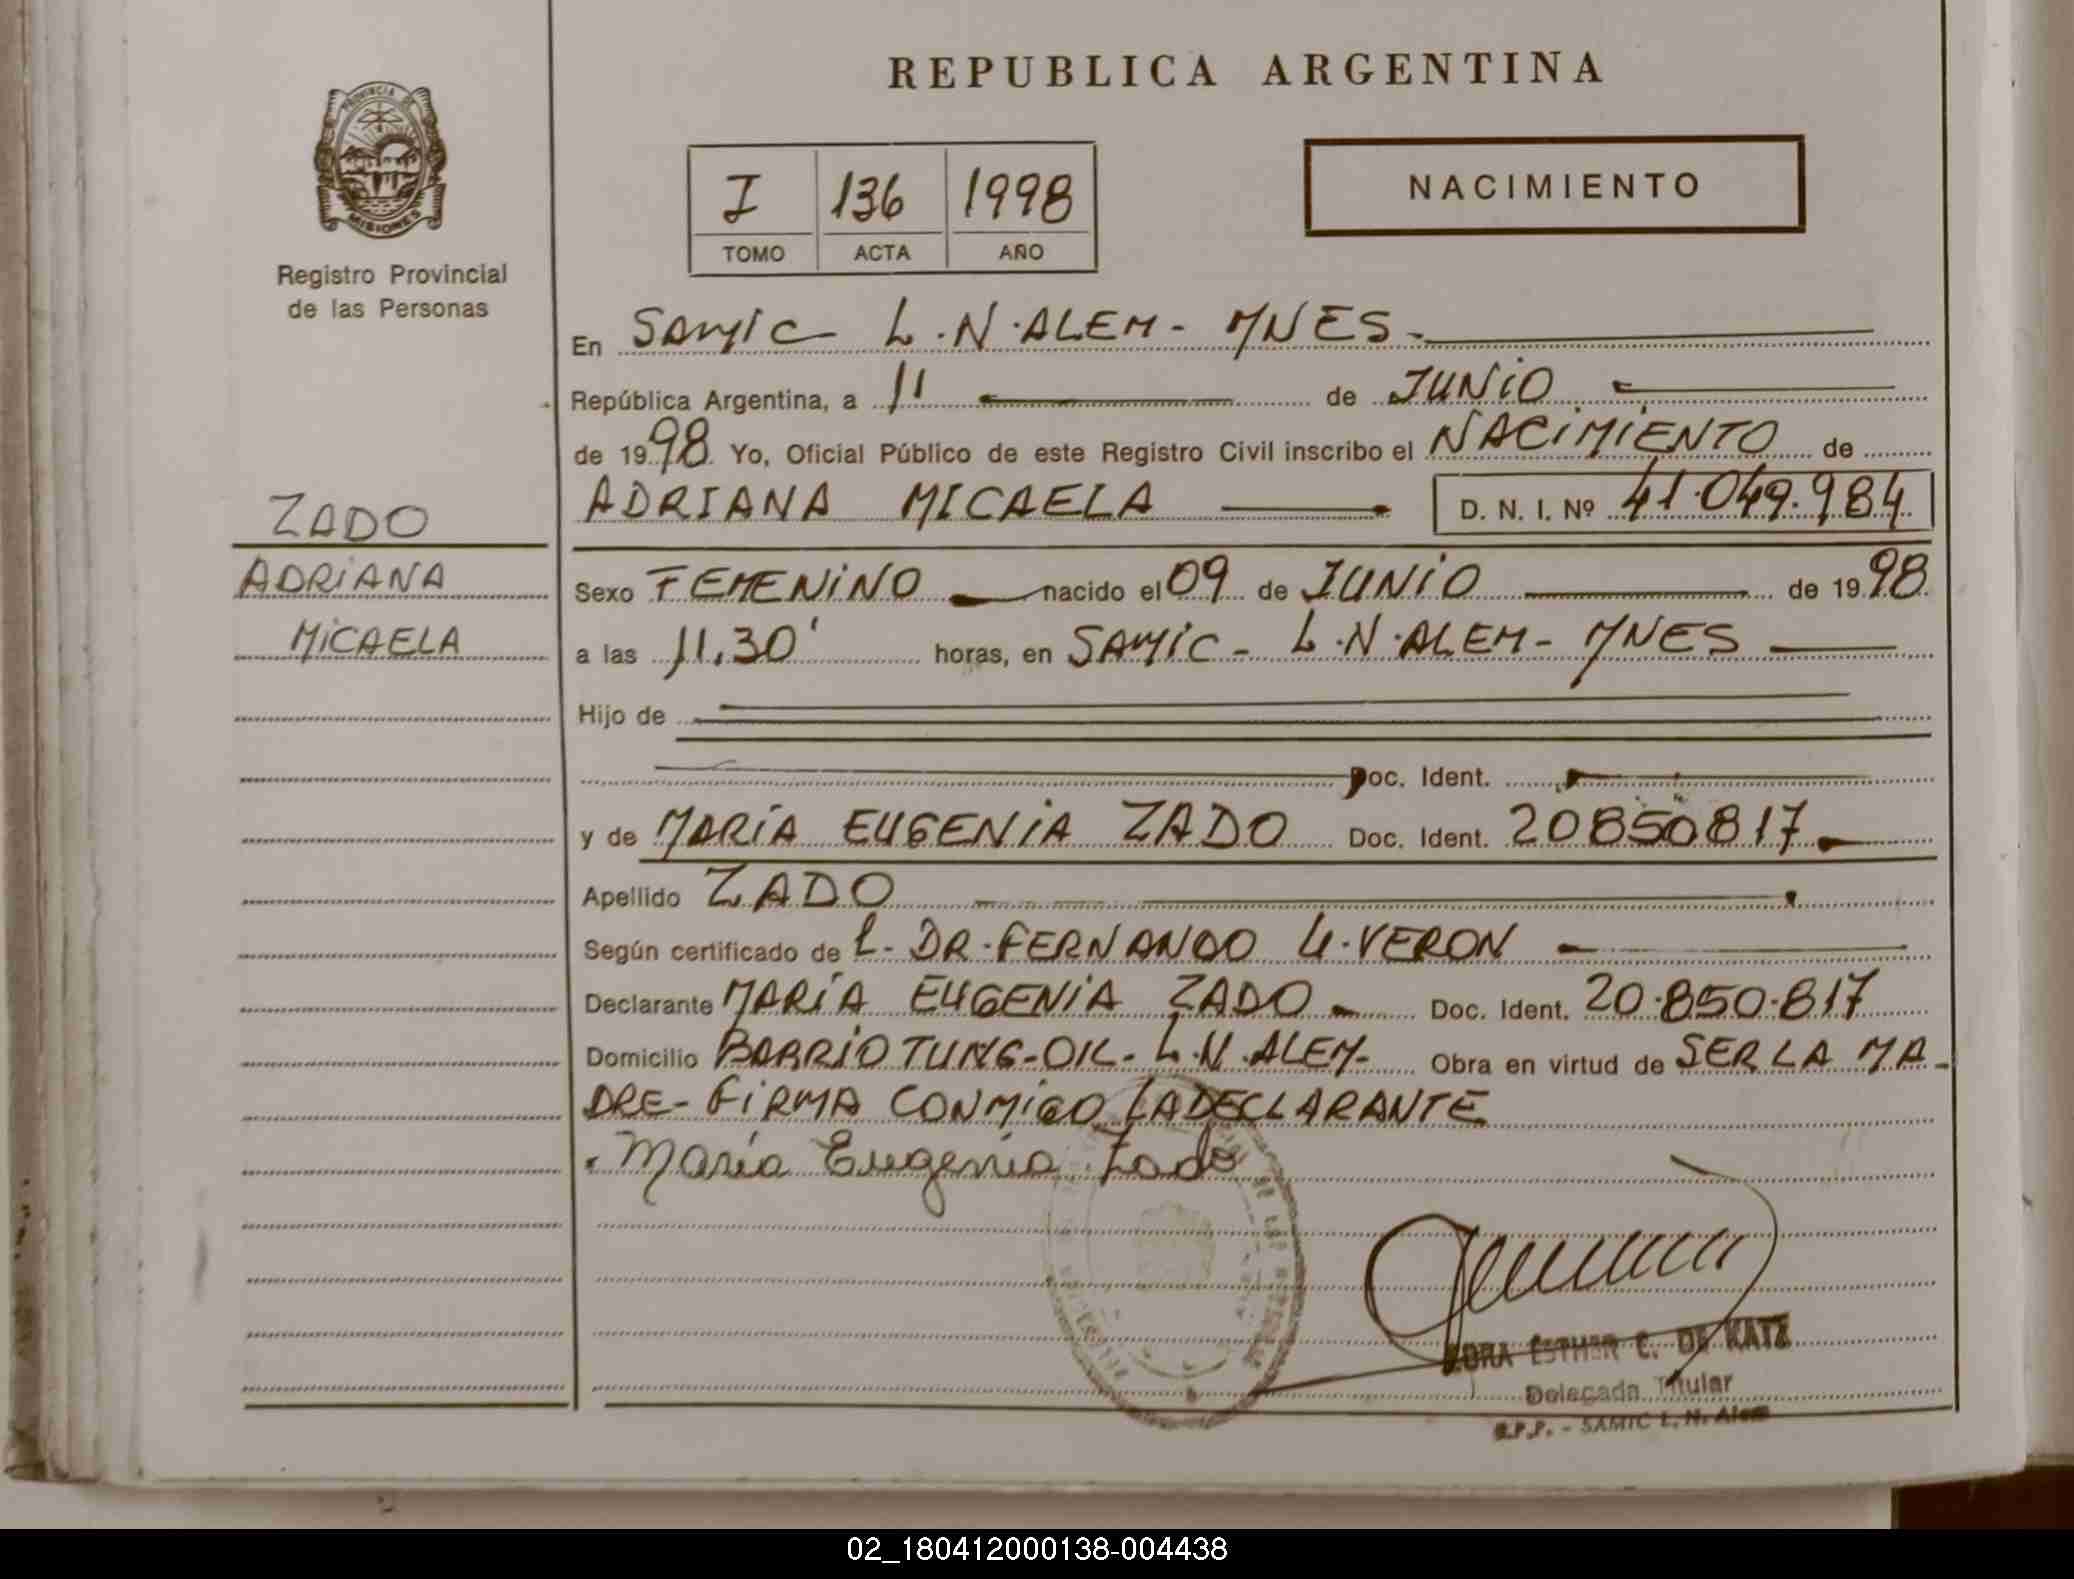 REPUBLICA ARGENTINA
PROVINCIA DE
MISIONES
Registro Provincial
de las Personas
I 136 1998
TOMO ACTA AÑO
NACIMIENTO
ZADO
ADRIANA
MICAELA
En SAMIC L.N.ALEM- MNES.
República Argentina, a 11 de JUNIO
de 1998. Yo, Oficial Público de este Registro Civil inscribo el NACIMIENTO de
ADRIANA MICAELA D. N. I. Nº 41.049.984
Sexo FEMENINO nacido el 09 de JUNIO de 1998
a las 11,30' horas, en SAMIC- L.N.ALEM- MNES
Hijo de
Doc. Ident.
y de MARÍA EUGENIA ZADO Doc. Ident. 20850817
Apellido ZADO
Según certificado de L- DR.FERNANDO VERON
Declarante MARÍA EUGENIA ZADO Doc. Ident. 20.850.817
Domicilio BARRIO TUNG-OIL- L.N.ALEM- Obra en virtud de SER LA MA-
DRE- FIRMA CONMIGO LA DECLARANTE
María Eugenia Zado
ESTHER C. DE KATZ
Delegada Titular
R.P.P. - SAMIC L. N. Alem
02_180412000138-004438